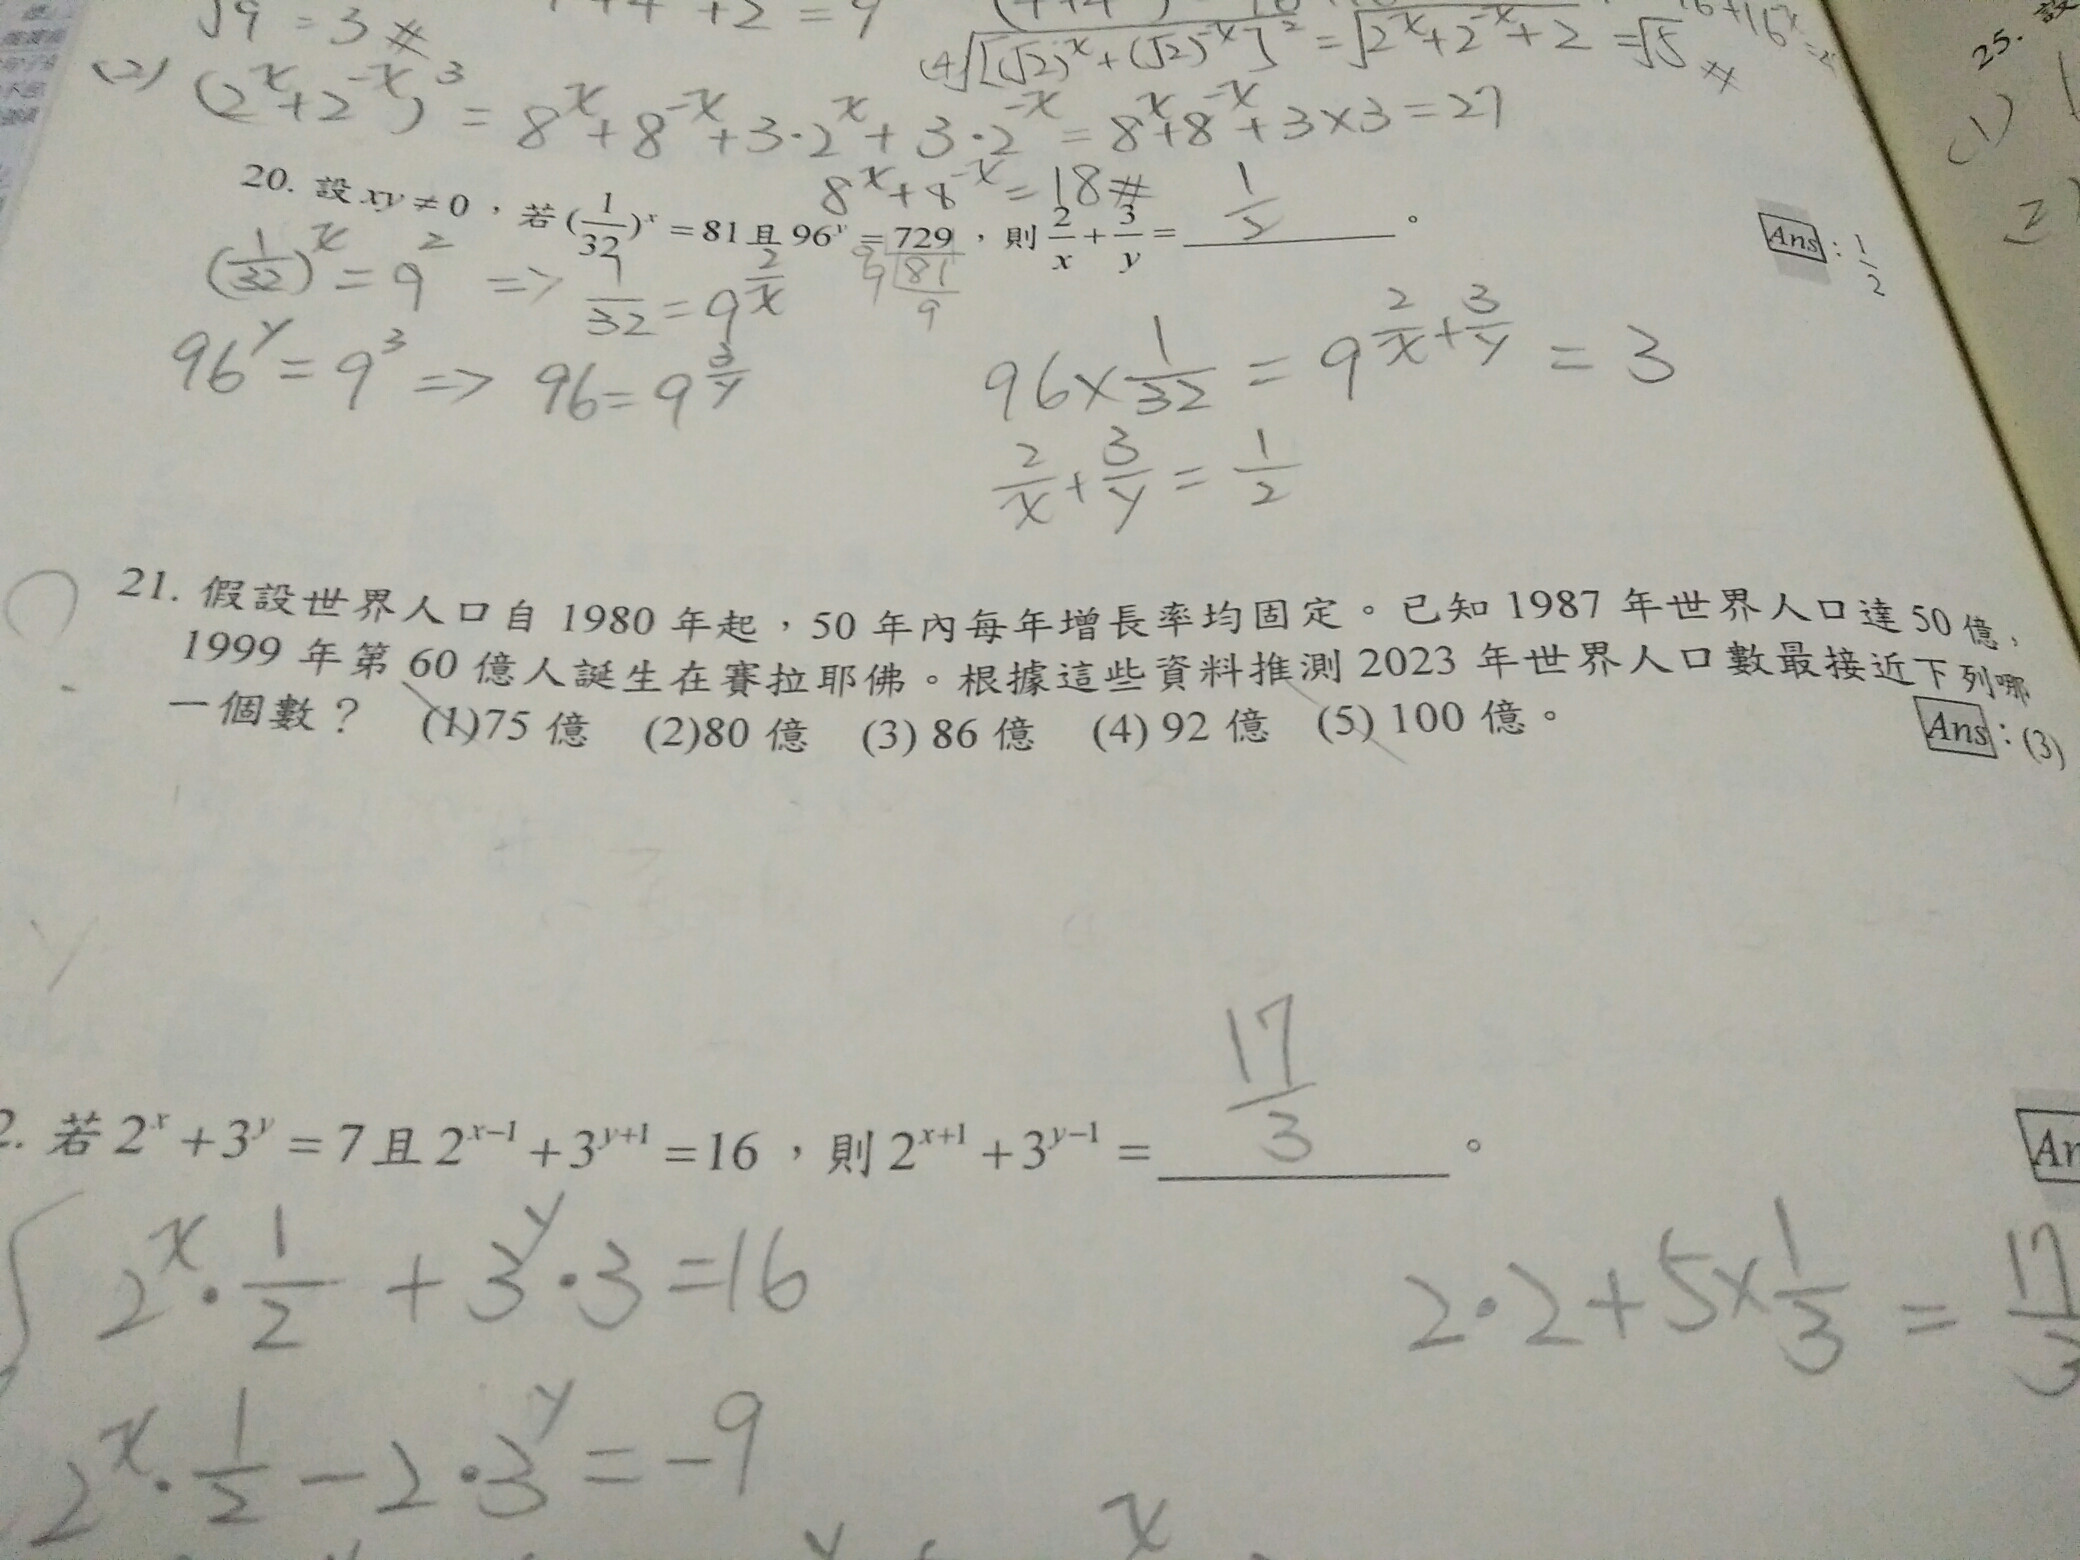 √9 = 3 #
+2 = 9
(4) √[(√2)^x + (√2)^-x]² = √2^x + 2^-x + 2 = √5 #
(2) (2^x + 2^-x)³ = 8^x + 8^-x + 3·2^x + 3·2^-x = 8^x + 8^-x + 3×3 = 27
8^x + 8^-x = 18 #
20. 設 xy ≠ 0，若 (1/32)^x = 81 且 96^y = 729，則 2/x + 3/y = 1/2 。
Ans : 1/2
(1/32)^x = 9² => 1/32 = 9^(2/x)
96^y = 9³ => 96 = 9^(3/y)
96 × 1/32 = 9^(2/x + 3/y) = 3
2/x + 3/y = 1/2
21. 假設世界人口自 1980 年起，50 年內每年增長率均固定。已知 1987 年世界人口達 50 億，
1999 年第 60 億人誕生在賽拉耶佛。根據這些資料推測 2023 年世界人口數最接近下列哪
一個數？ (1)75 億 (2)80 億 (3) 86 億 (4) 92 億 (5) 100 億。
Ans : (3)
2. 若 2^x + 3^y = 7 且 2^(x−1) + 3^(y+1) = 16，則 2^(x+1) + 3^(y−1) = 17/3 。
2^x · 1/2 + 3^y · 3 = 16
2·2 + 5 × 1/3 = 17/3
2^x · 1/2 − 2·3^y = −9
25.
(1)